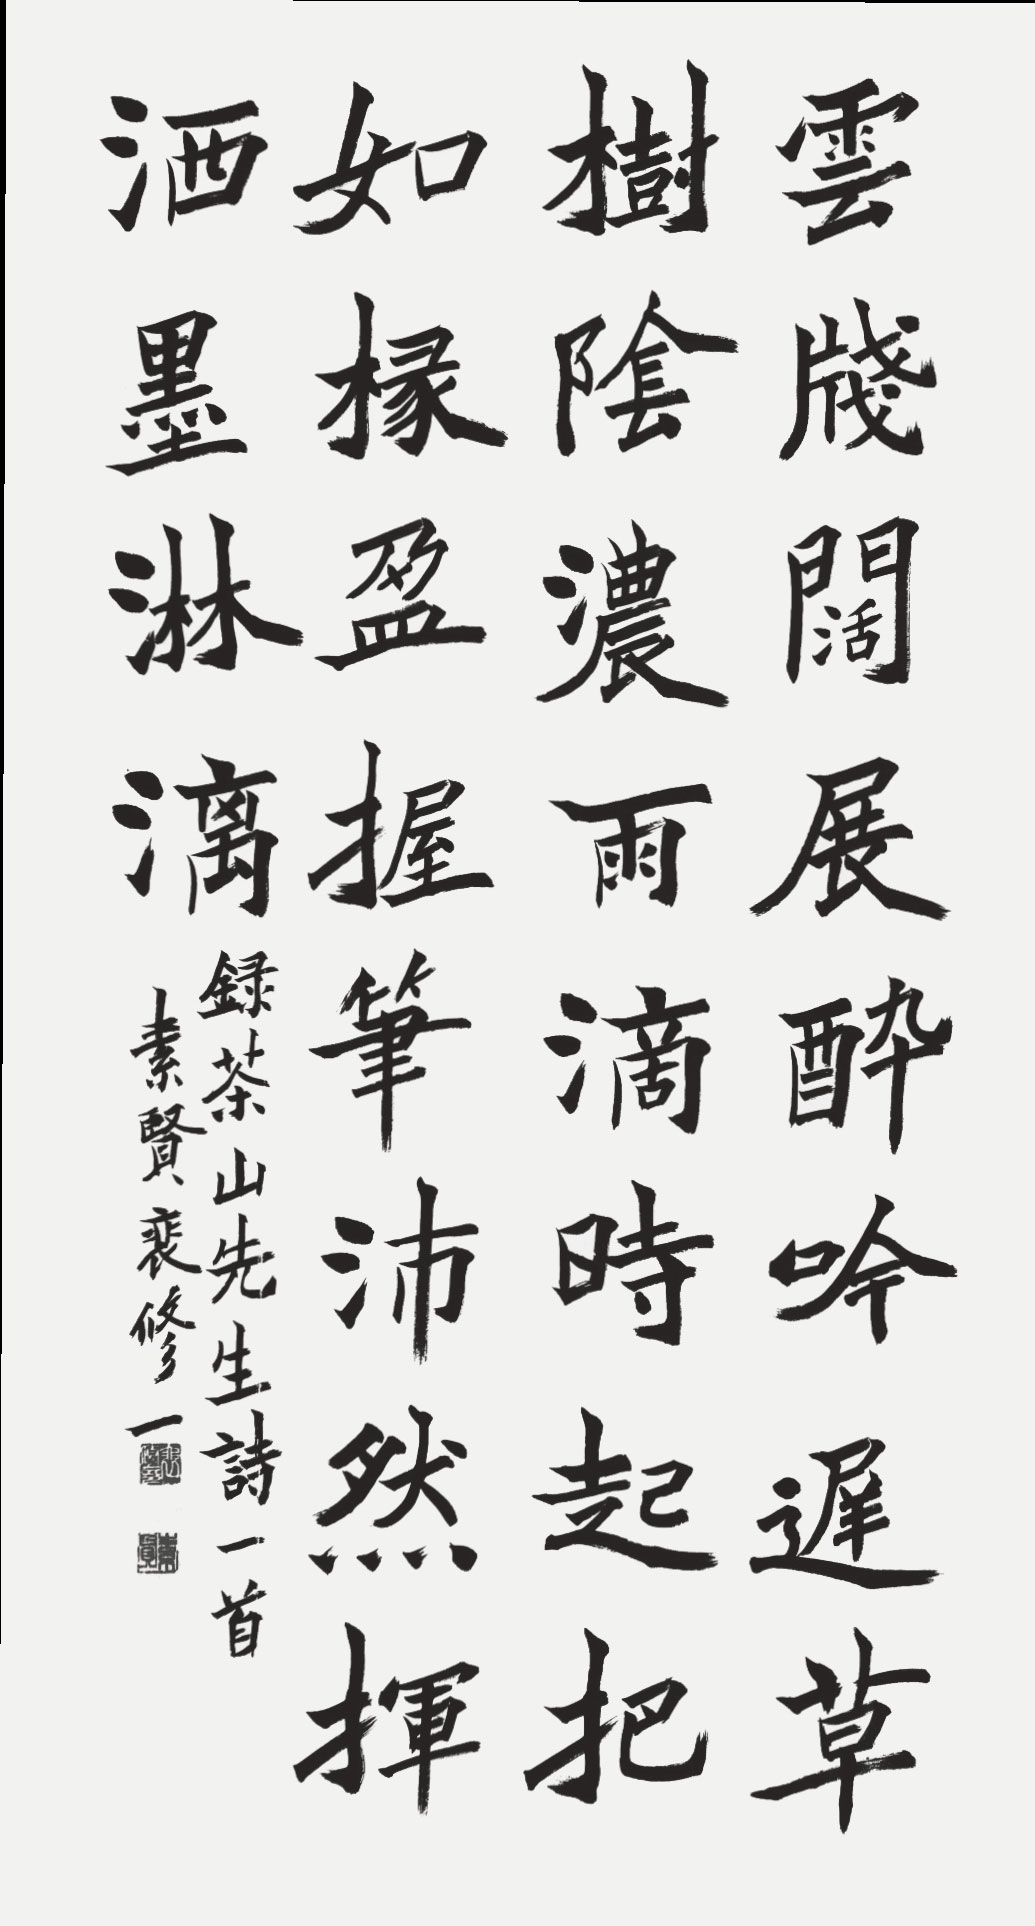 雲牋闊展醉吟遲草
樹陰濃雨滴時起把
如椽盈握筆沛然揮
洒墨淋漓
錄茶山先生詩一首
素賢裵修一